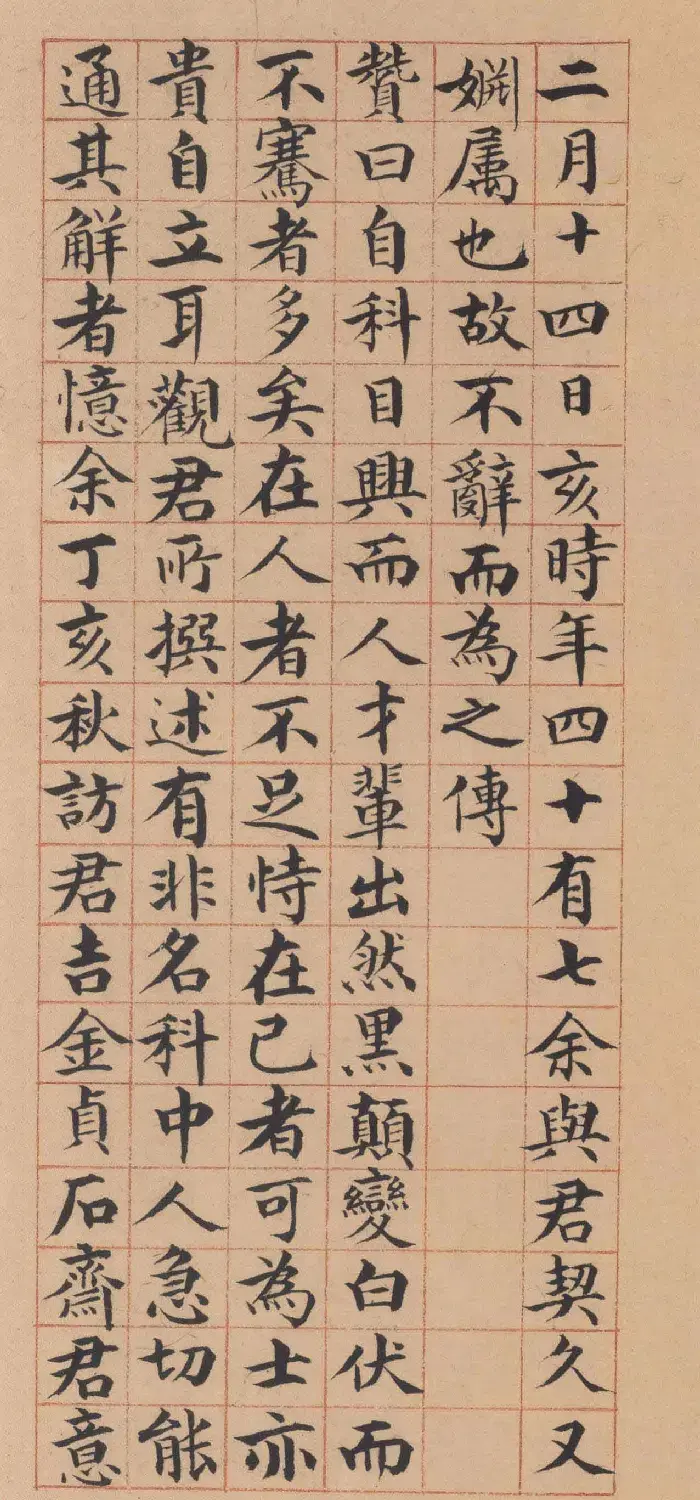 二月十四日亥時年四十有七余與君契久又
姻属也故不辭而為之傳
贊曰自科目興而人才輩出然黑顛變白伏而
不騫者多矣在人者不足恃在己者可為士亦
貴自立耳觀君所撰述有非名科中人急切能
通其解者憶余丁亥秋訪君吉金貞石齋君意